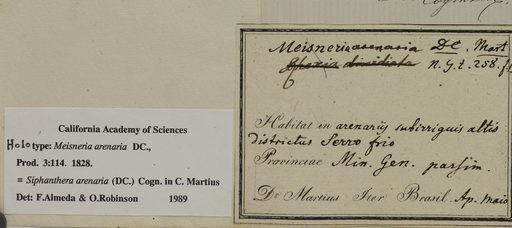 California Academy of Sciences
Holotype: Meisneria arenaria DC.,
Prod. 3:114. 1828.
= Siphanthera arenaria (DC.) Cogn. in C. Martius
Det: F.Almeda & O.Robinson 1989
Meisneria arenaria DC. Mart
n. g. t. 258. f.
Habitat in arenariis subirriguis altis
districtus Serro frio
Provinciae Min. Gen. passim.
Dr Martius Iter Brasil. Ap. Maio